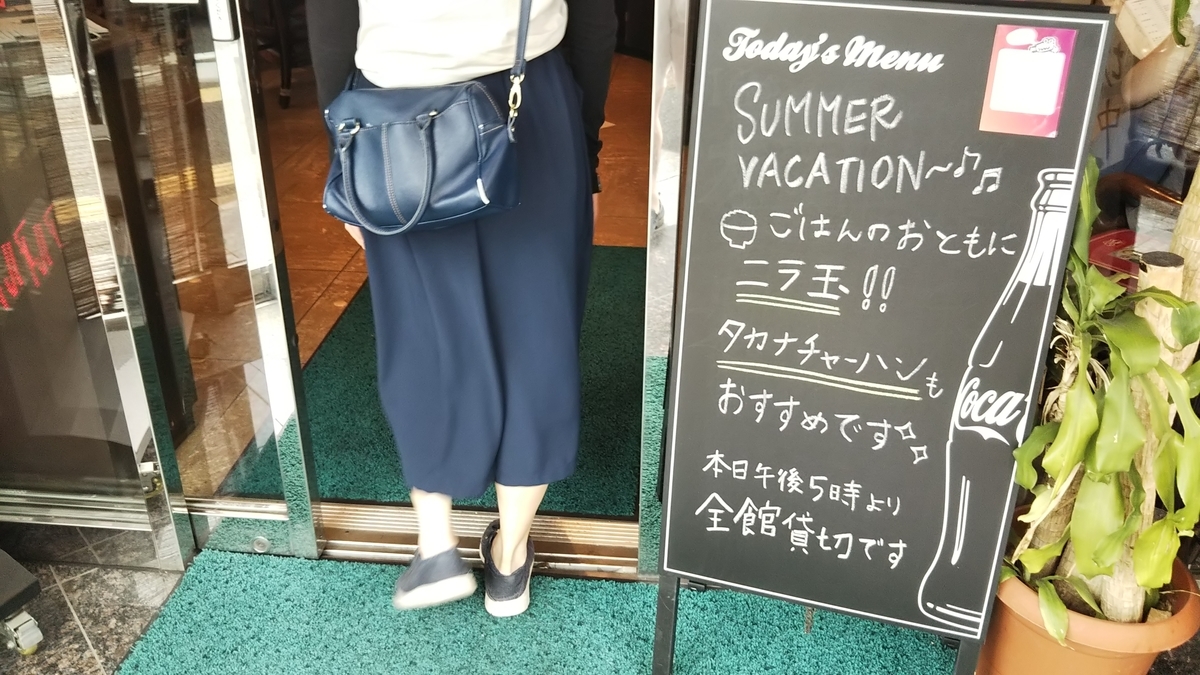 Today's Menu
SUMMER
VACATION~♪♬
ごはんのおともに
ニラ玉!!
タカナチャーハンも
おすすめです
本日午後5時より
全館貸切です
Coca